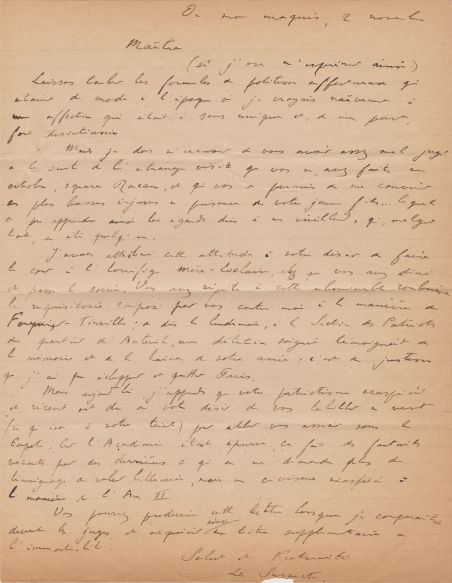 De mon maquis, 2 novembre
Maître
(si j'ose m'exprimer ainsi)
Laissons tomber les formules de politesse affectueuse qui
étaient de mode à l'époque où je croyais naïvement à
une affection qui était à sens unique et, de ma part,
fort désintéressée
Mais je dois m'excuser de vous avoir assez mal jugé
à la suite de l'étrange visite que vous m'avez faite en
octobre, square Racan, et qui vous a permis de me couvrir
des plus basses injures en présence de votre jeune fils... lequel
a pu apprendre ainsi les égards dus à un vieillard, qui, malgré
tout, a été quelqu'un.
J'avais attribué cette attitude à votre désir de faire
la cour à l'horrifique chez qui vous avez dîné
et passé la soirée. Vous avez répété à cette abominable
le réquisitoire composé par vous contre moi à la manière de
Fouquier Tinville; a dès le lendemain, à la Section des Patriotes
du quartier d'Auteuil, une délation soignée témoignait de
la mémoire et de la haine de votre amie: c'est de justesse
que j'ai pu échapper et quitter Paris.
Mais aujourd'hui j'apprends que votre patriotisme exaspéré
et récent est dû à votre désir de vous habiller en vert
(ce qui ira à votre teint) pour aller vous asseoir sous la
Coupole. Car l'Académie étant épurée, ça fait des fauteuils
vacants par des et qui ne demande plus de
témoignage de valeur littéraire, mais un civisme exaspéré à
la manière de l'An II
Vous pourrez produire cette lettre lorsque je comparaîtrai
devant les juges et acquérir ainsi un titre supplémentaire à
l'immortalité.
Salut et Fraternité
Le Suspect